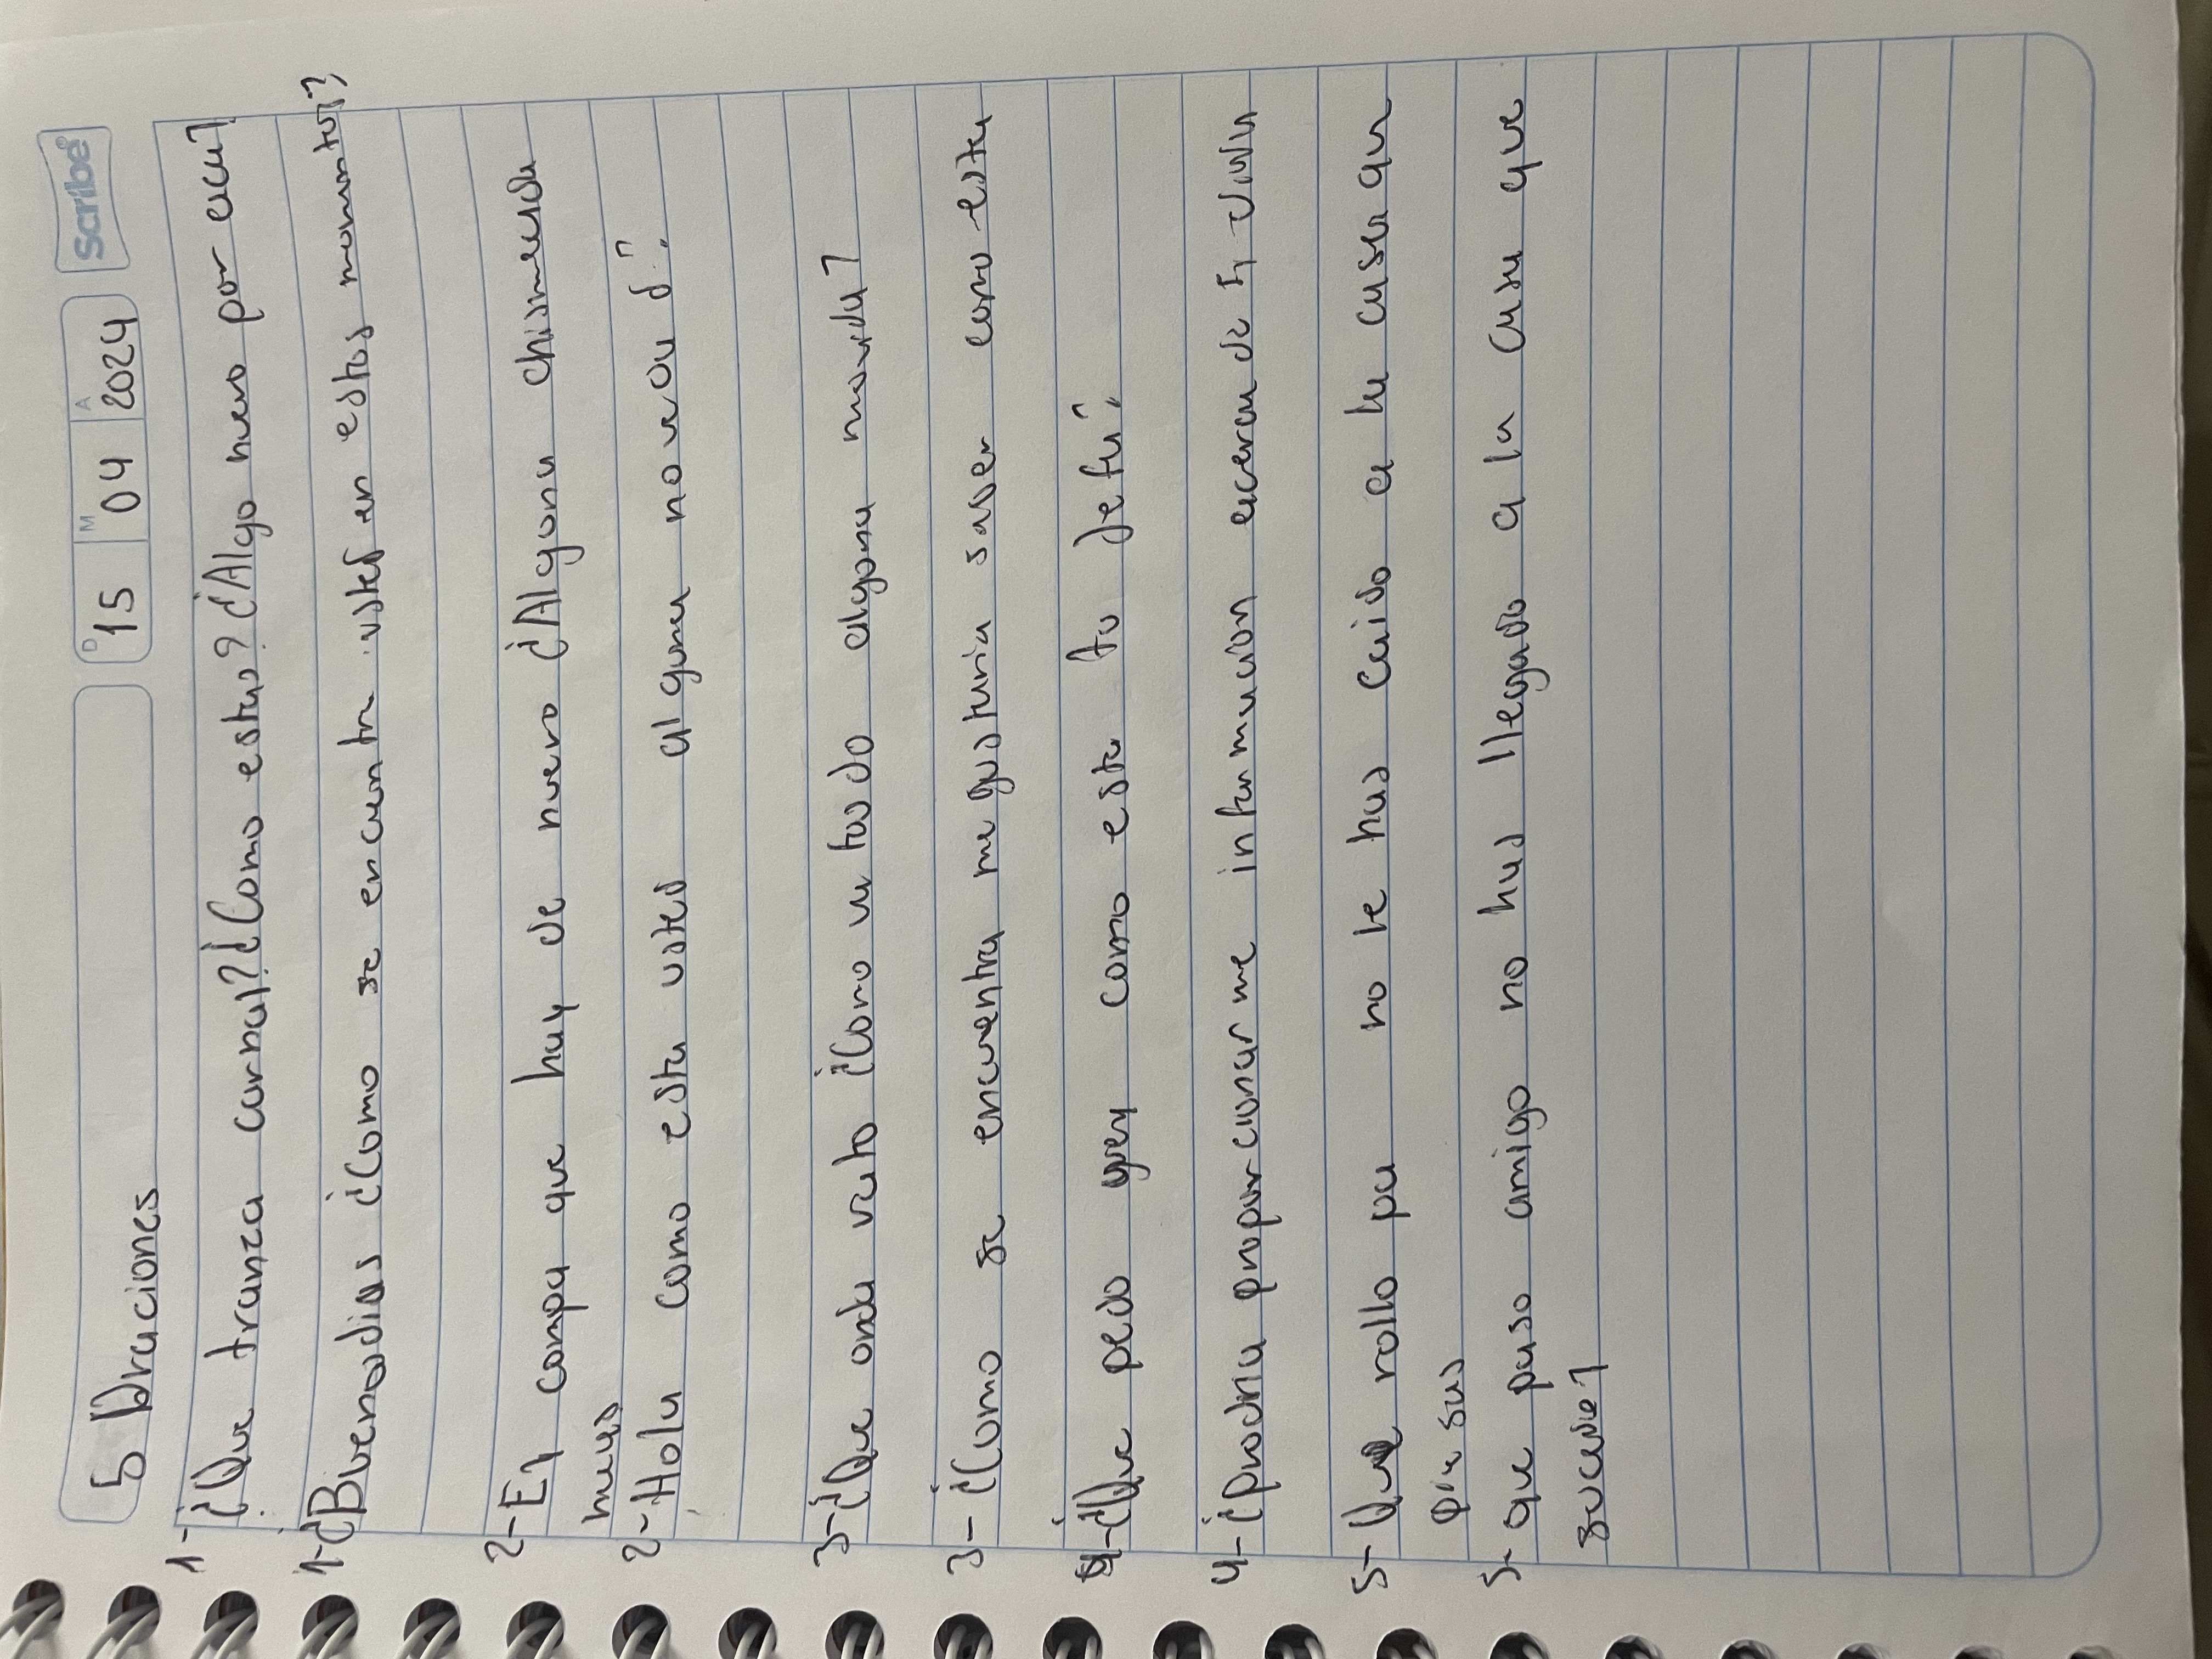 D 15 M 04 A 2024 scribe
5 Oraciones
1- ¿Que tranza carnal? ¿Como estas? ¿Algo nuevo por aca?
1- ¿Buenos dias ¿Como se encuentra usted en estos momentos?
2- Ey compa que hay de nuevo ¿Algona chismeada
nueva
2- Hola como esta usted alguna novedad?
3- ¿Que onda vato ¿Como va todo algona movida?
3- ¿Como se encuentra me gustaria saber como esta
4- ¿Que pedo guey como esta tu Jefa?
4- ¿podria proporcionarme informacion acerca de
5- Que rollo pa no te has caido a la cassa que
5- que paso amigo no has llegado a la casa que
sucede?